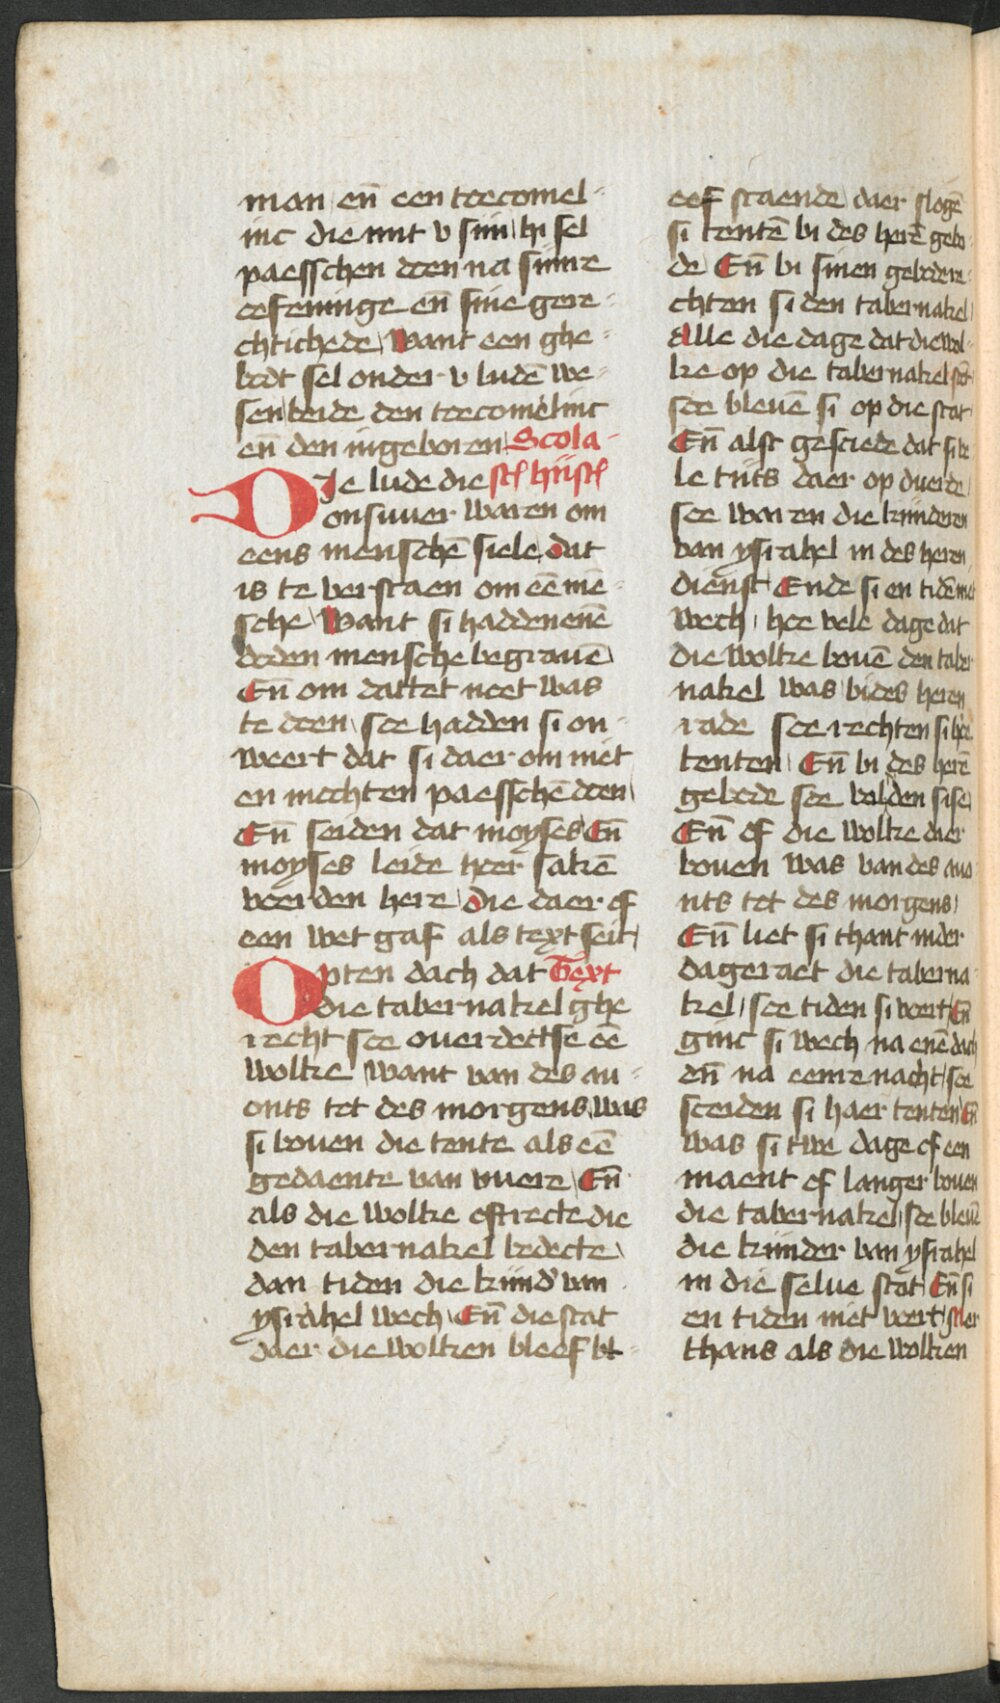 man en̄ een toecomel-
inc die mit v sijn hi sel
paesschen doen na sijnre
oefeninge en̄ sine gere-
chtichede want een ghe-
bodt sel onder v ludē we-
sen beide den toecomelinc
en̄ den ingeboren Scola-
Die lude die stᷓ histᷓ
onsuuer waren om
eens menschē siele dat
is te verstaen om eē mē-
sche want si hadden enē
doden mensche begrauē
En̄ om dattet neet was
te doen soe hadden si on-
weert dat si daer om niet
en mochten paesschē doen
En̄ seiden dat moyses En̄
moyses leide hoer sakē
voer den here die daer of
een wet gaf als text seit
Opten dach dat Text
die tabernakel ghe
recht soe ouerdectse eē
wolke want van des au-
onts tot des morgens was
si bouen die tente als eē
gedaente van vuere En̄
als die wolke oftrecte die
den tabernakel bedecte
dan tiden die kind' van
ysrahel wech En̄ die stat
daer die wolken bleef bl-
eef staende daer slogē
si tentē bi des herē gebo-
de En̄ bi sinen gebode re-
chten si den tabernakel
Alle die dage dat die wol-
ke op die tabernakel stōt
soe bleuē si op die stat
En̄ alst gesciede dat si ve
le tijts daer op duerde
soe waren die kinderen
van ysrahel in des heren
dienst Ende si en tidē niet
wech hoe vele dage dat
die wolke bouē den taber
nakel was bi des heren
rade soe rechten si hoe
tenten En̄ bi des herē
gebode soe volden si se
En̄ of die wolke dier
bouen was van des auo
nts tot des morgens
En̄ liet si thant inder
dageraet die taberna-
kel soe tiden si voert En̄
ginc si wech na enē dach
en̄ na eenre nacht soe
scoiden si haer tenten En̄
was si twe dage of een
maent of langer bouen
die tabernakel soe bleuē
die kinder van ysrahel
in die selue stat En̄ si
en tiden niet voert
thans als die wolken